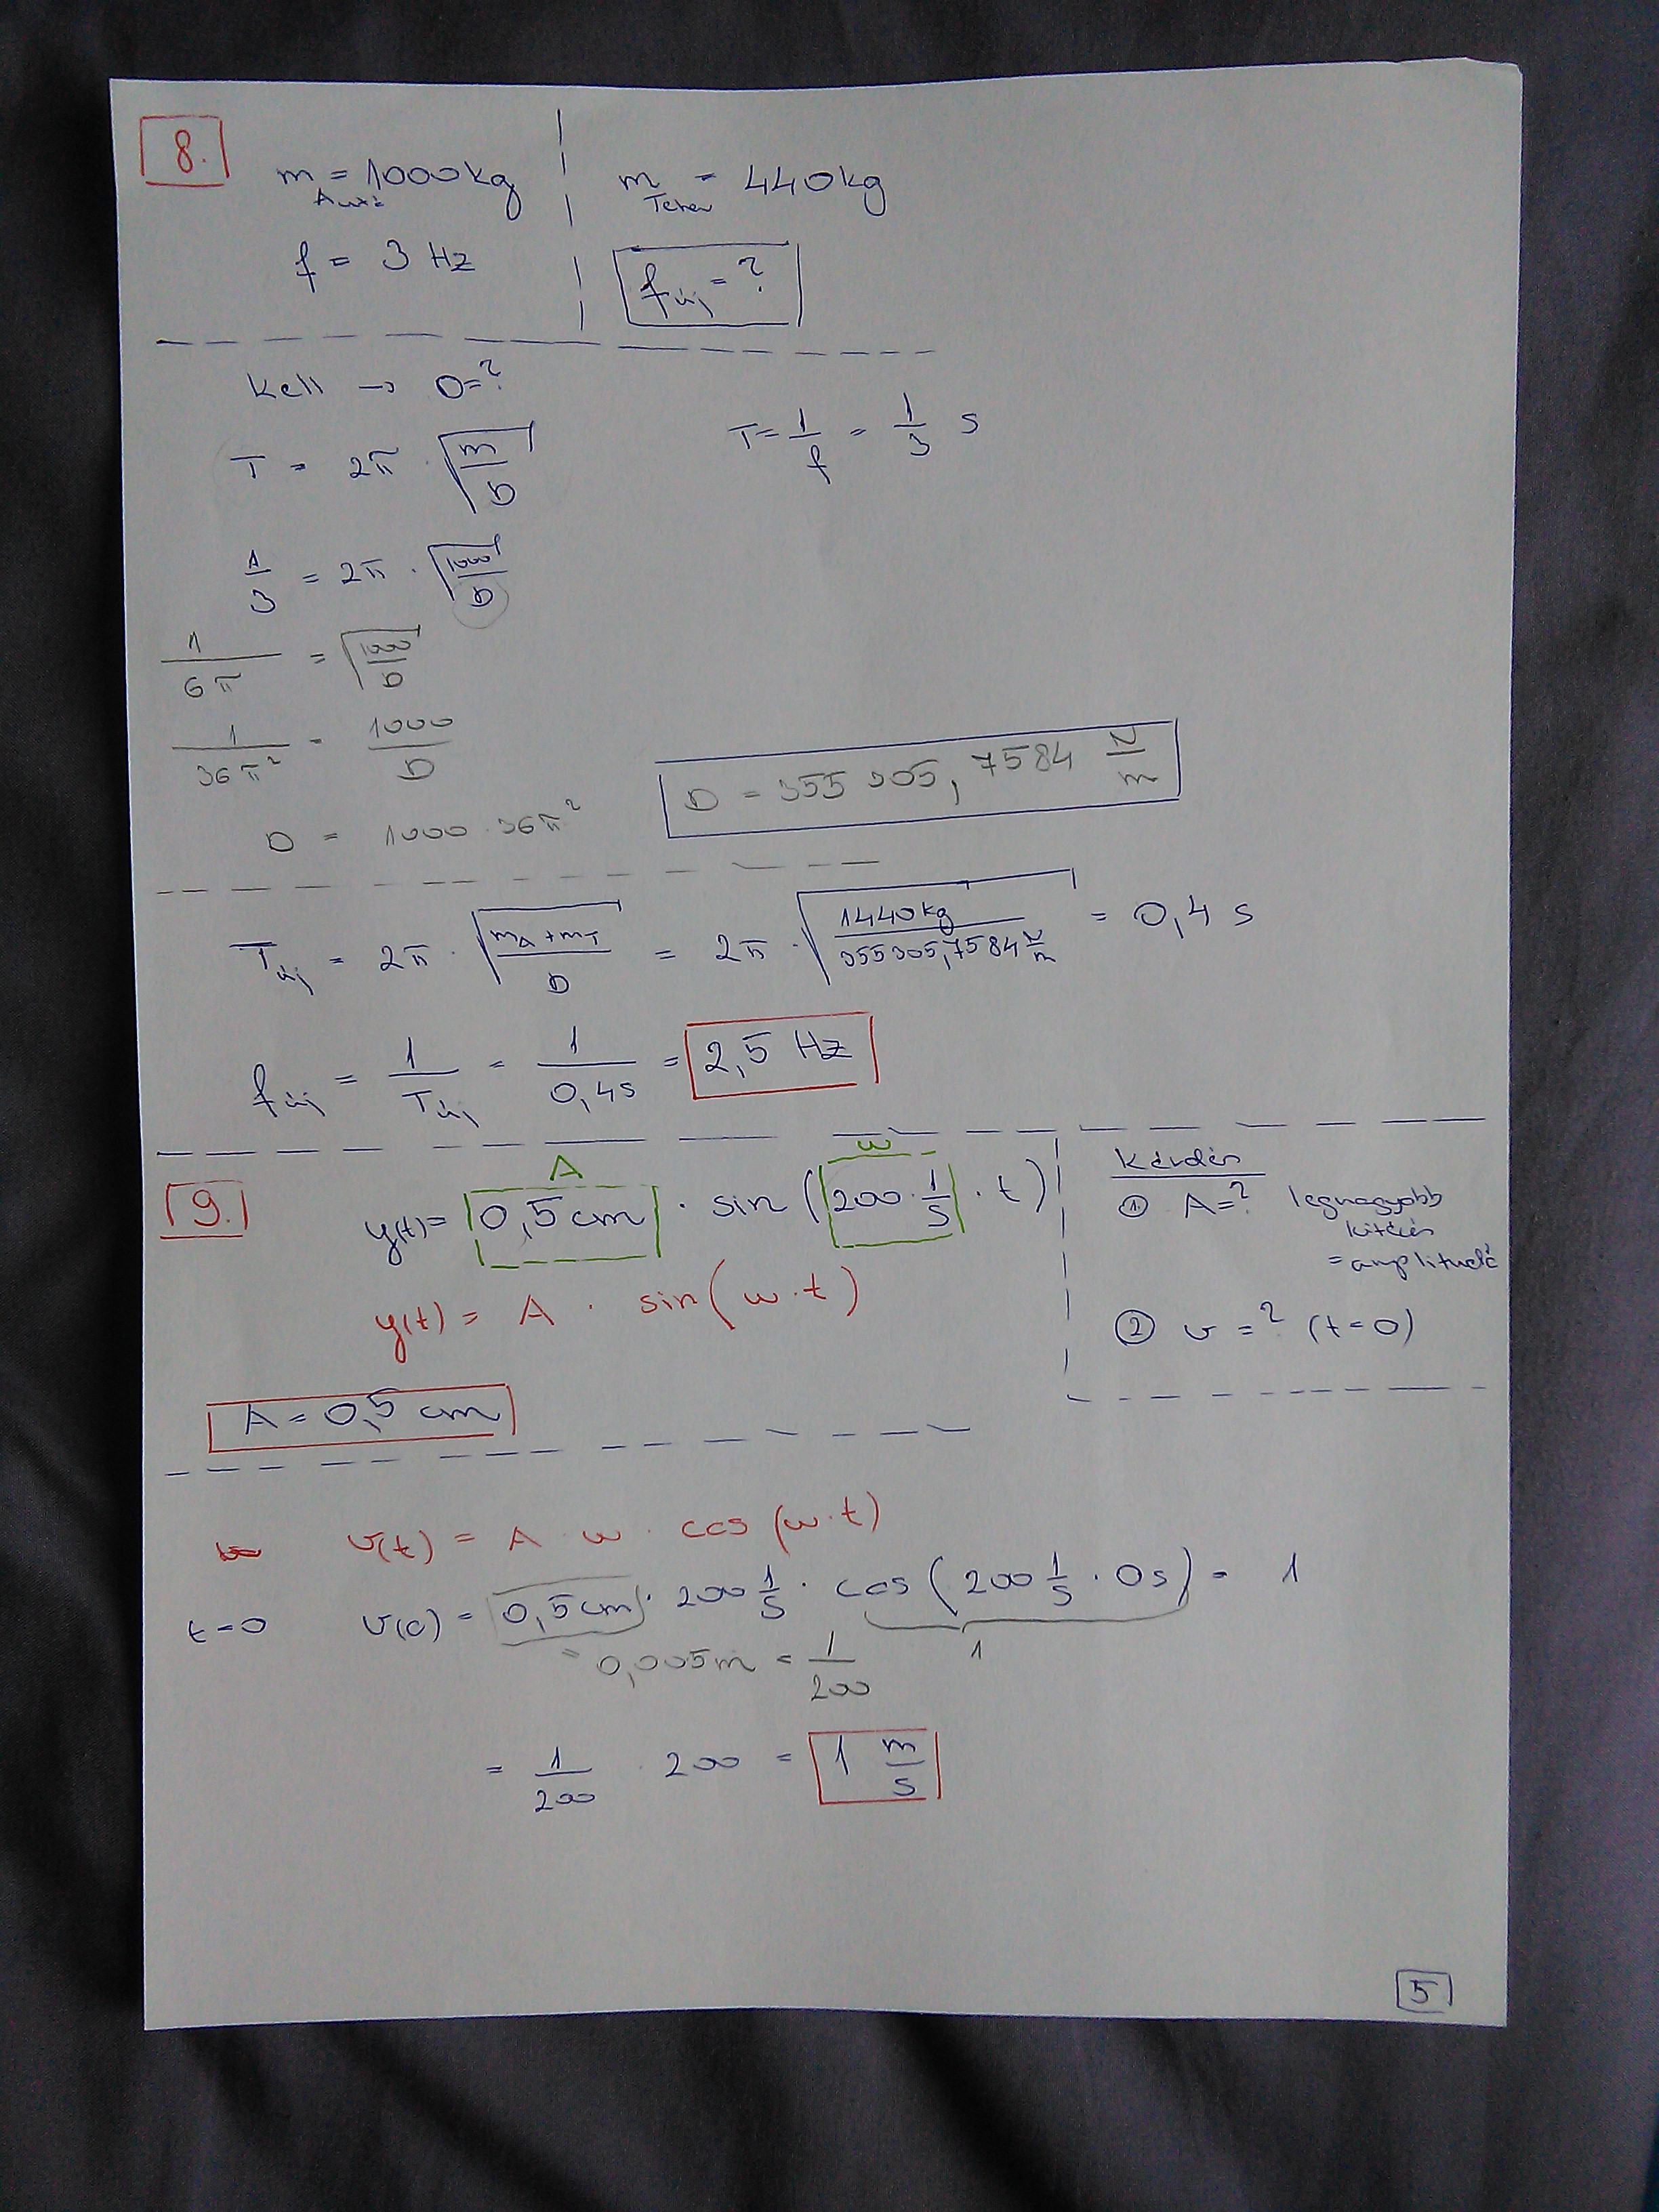 8.
m Autó = 1000 kg
m Teher = 440 kg
f = 3 Hz
f új = ?
Kell → D = ?
T = 2π · √(m/D)
T = 1/f = 1/3 s
1/3 = 2π · √(1000/D)
1/6π = √(1000/D)
1/36π² = 1000/D
D = 1000 · 36π²
D = 355 305,7584 N/m
T új = 2π · √((mA + mT)/D) = 2π · √(1440 kg / 355305,7584 N/m) = 0,4 s
f új = 1/T új = 1/0,4s = 2,5 Hz
9.
A
ω
y(t) = 0,5 cm · sin (200 · 1/s · t)
y(t) = A · sin(ω · t)
Kérdés
① A = ? legnagyobb
kitérés
= amplitudó
② v = ? (t = 0)
A = 0,5 cm
v(t) = A · ω · cos (ω · t)
t = 0 v(0) = 0,5 cm · 200 1/s · cos (200 1/s · 0s) = 1
= 0,005m = 1/200
1
= 1/200 · 200 = 1 m/s
5